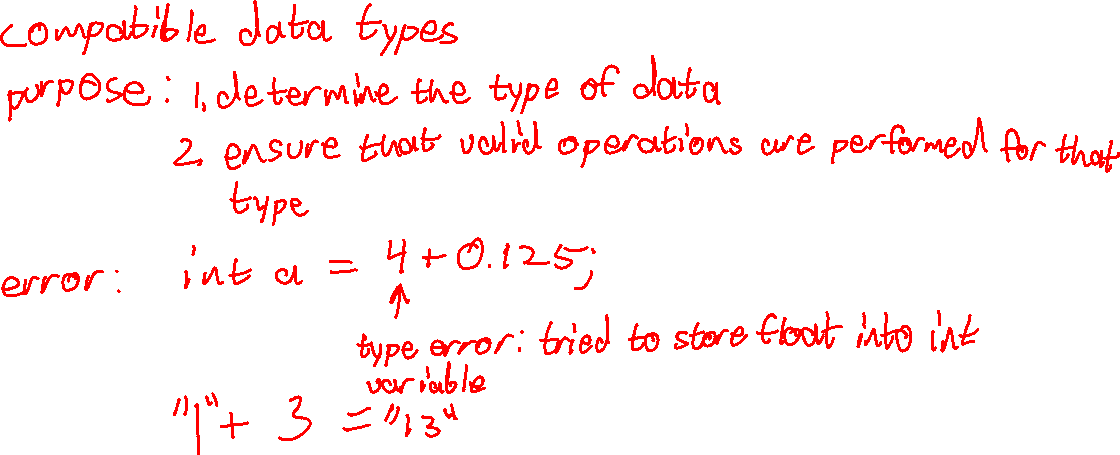 compatible data types
purpose: 1. determine the type of data
2. ensure that valid operations are performed for that
type
error: int a = 4 + 0.125;
↑
type error: tried to store float into int
variable
"1" + 3 = "13"